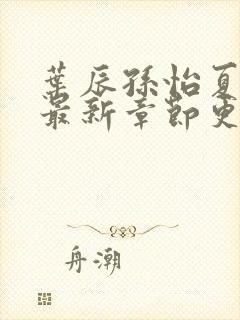 葉辰孫怡夏
最新章節更
舟潮